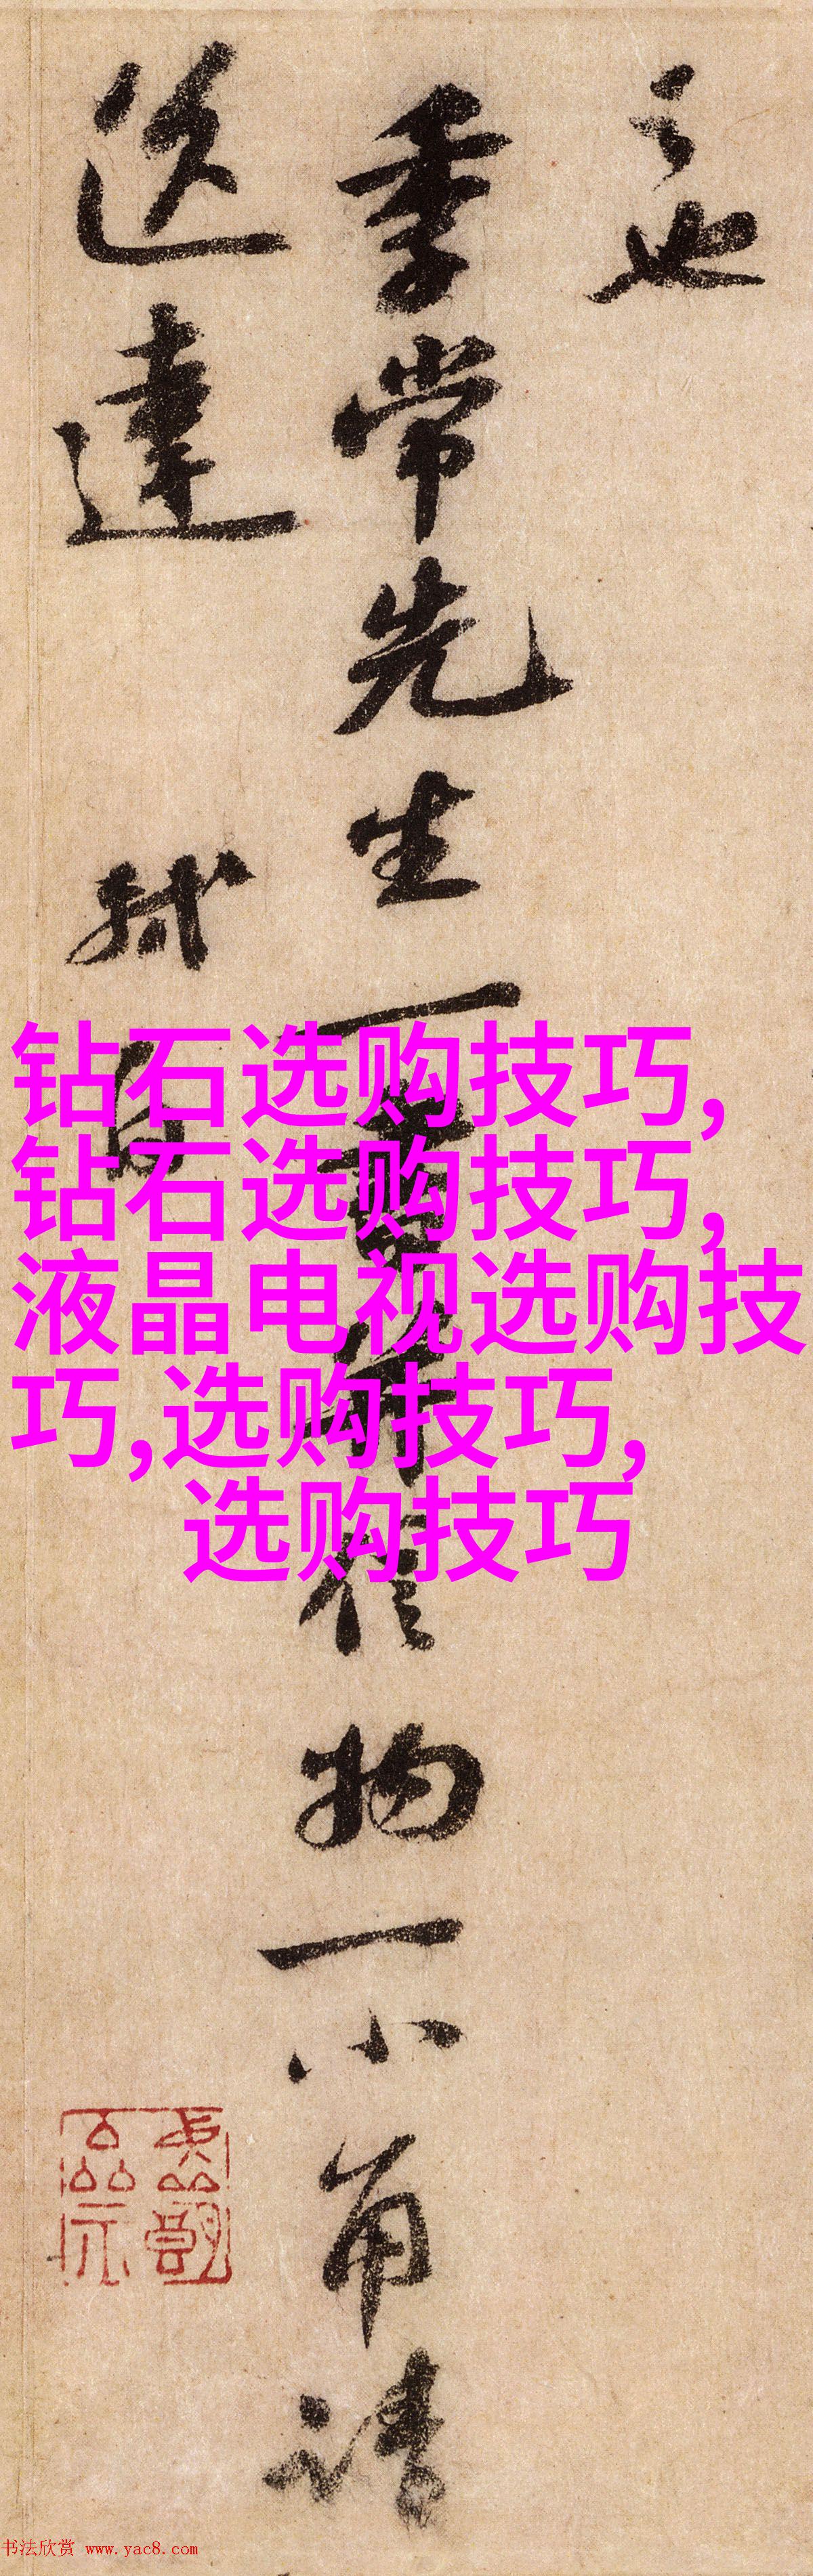 之也
季常先生一書并信物一小角請
送達 軾白
钻石选购技巧,
钻石选购技巧,
液晶电视选购技
巧,选购技巧,
选购技巧
书法欣赏 www.yac8.com